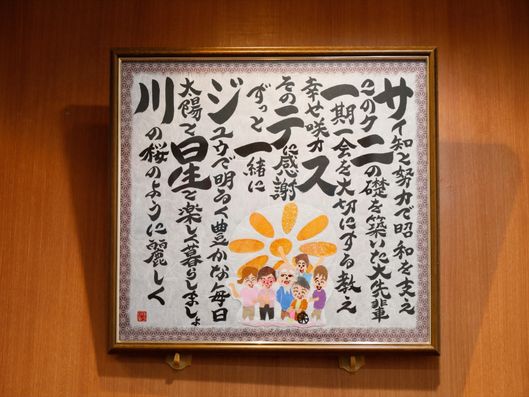 サイ知と努力で昭和を支え
このクニの礎を築いた大先輩
一期一会を大切にする教え
幸せ咲カス
そのテに感謝
ずっと一緒に
ジユウで明るく豊かな毎日
太陽と星と楽しく暮らしましょ
川の桜のように麗しく